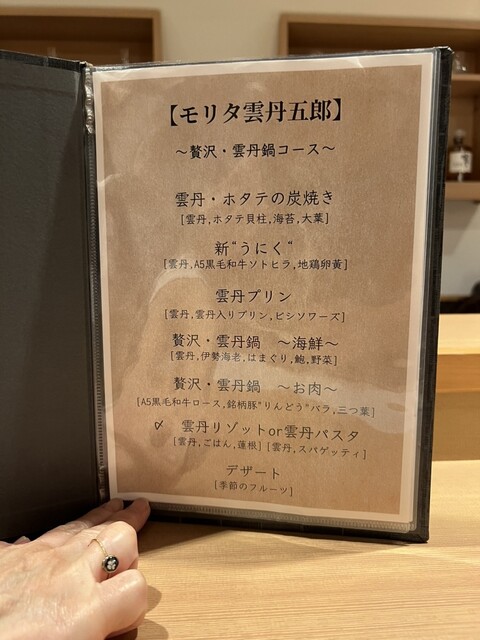 【モリタ雲丹五郎】
～贅沢・雲丹鍋コース～
雲丹・ホタテの炭焼き
[雲丹,ホタテ貝柱,海苔,大葉]
新“うにく“
[雲丹,A5黒毛和牛ソトヒラ,地鶏卵黄]
雲丹プリン
[雲丹,雲丹入りプリン,ビシソワーズ]
贅沢・雲丹鍋 ～海鮮～
[雲丹,伊勢海老,はまぐり,鮑,野菜]
贅沢・雲丹鍋 ～お肉～
[A5黒毛和牛ロース,銘柄豚"りんどう"バラ,三つ葉]
〆 雲丹リゾットor雲丹パスタ
[雲丹,ごはん,蓮根] [雲丹,スパゲッティ]
デザート
[季節のフルーツ]